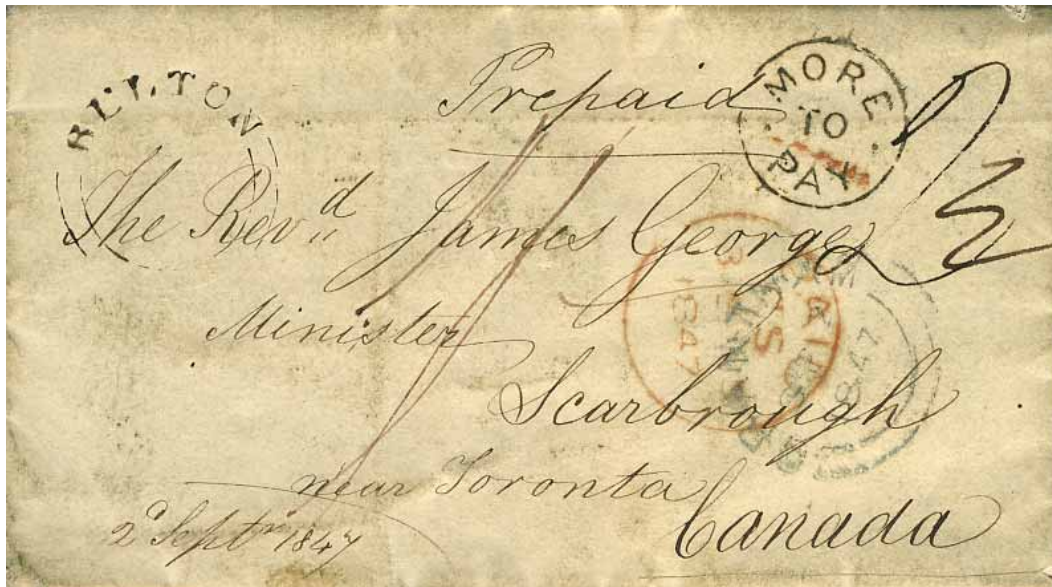 Prepaid
MORE
TO
PAY
The Rev.d James George
Minister
Scarbrough
near Toronta
Canada
2d Septr. 1847
1847